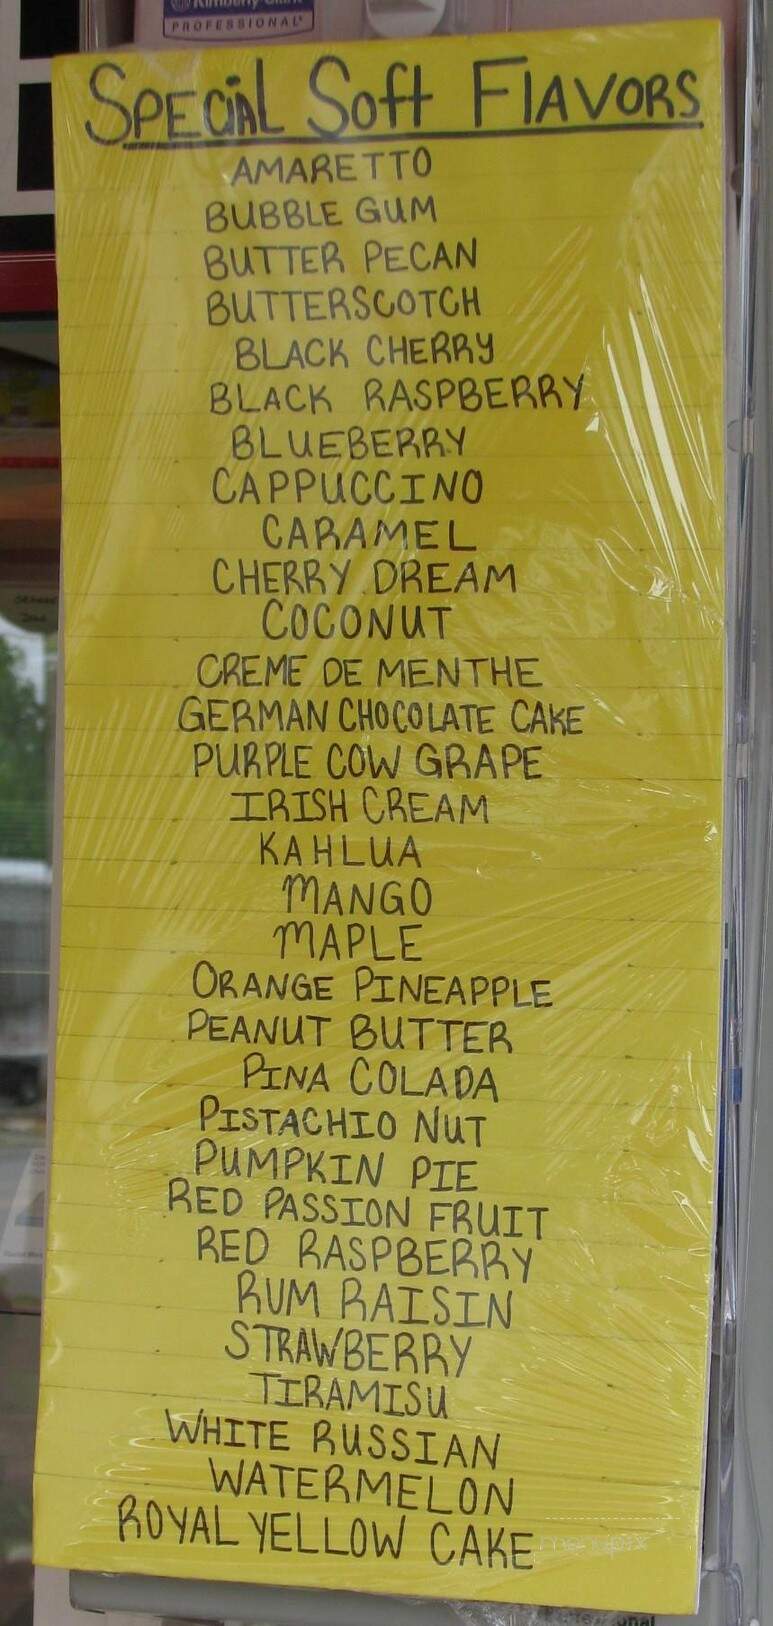 Kimberly-Clark
PROFESSIONAL
SPECIAL Soft FLAVORS
AMARETTO
BUBBLE GUM
BUTTER PECAN
BUTTERSCOTCH
BLACK CHERRY
BLACK RASPBERRY
BLUEBERRY
CAPPUCCINO
CARAMEL
CHERRY DREAM
COCONUT
CREME DE MENTHE
GERMAN CHOCOLATE CAKE
PURPLE COW GRAPE
IRISH CREAM
KAHLUA
MANGO
MAPLE
ORANGE PINEAPPLE
PEANUT BUTTER
PINA COLADA
PISTACHIO NUT
PUMPKIN PIE
RED PASSION FRUIT
RED RASPBERRY
RUM RAISIN
STRAWBERRY
TIRAMISU
WHITE RUSSIAN
WATERMELON
ROYAL YELLOW CAKE
menupix